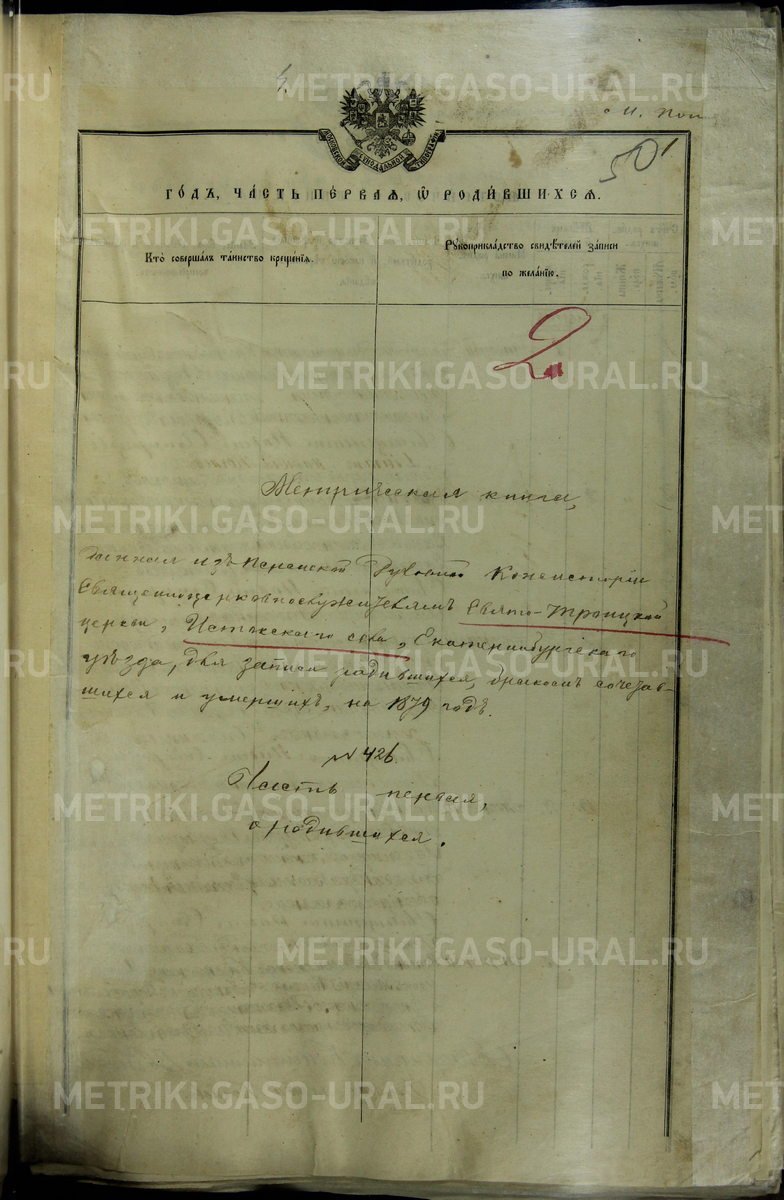 METRIKI.GASO-URAL.RU
и. пои
501
МОСКОВСКОЙ СѴНОДАЛЬНОЙ ТИПОГРАФІИ
ГО́ДЪ, ЧА́СТЬ ПЕ́РВАѦ, Ѽ РОДИ́ВШИХСѦ.
Кто̀ совершалъ таинство крещенїѧ.
Рꙋкоприкла́дство свидѣ́телей за́писи
по жела́нїю.
2
Метрическая книга,
данная изъ Пермской Духовной Консисторіи
Священноцерковнослужителямъ Свято-Троицкой
церкви, Истокскаго села, Екатеринбургскаго
уѣзда, для записи родившихся, бракомъ сочетав-
шихся и умершихъ, на 1879 годъ.
№ 426.
Часть первая,
о родившихся.